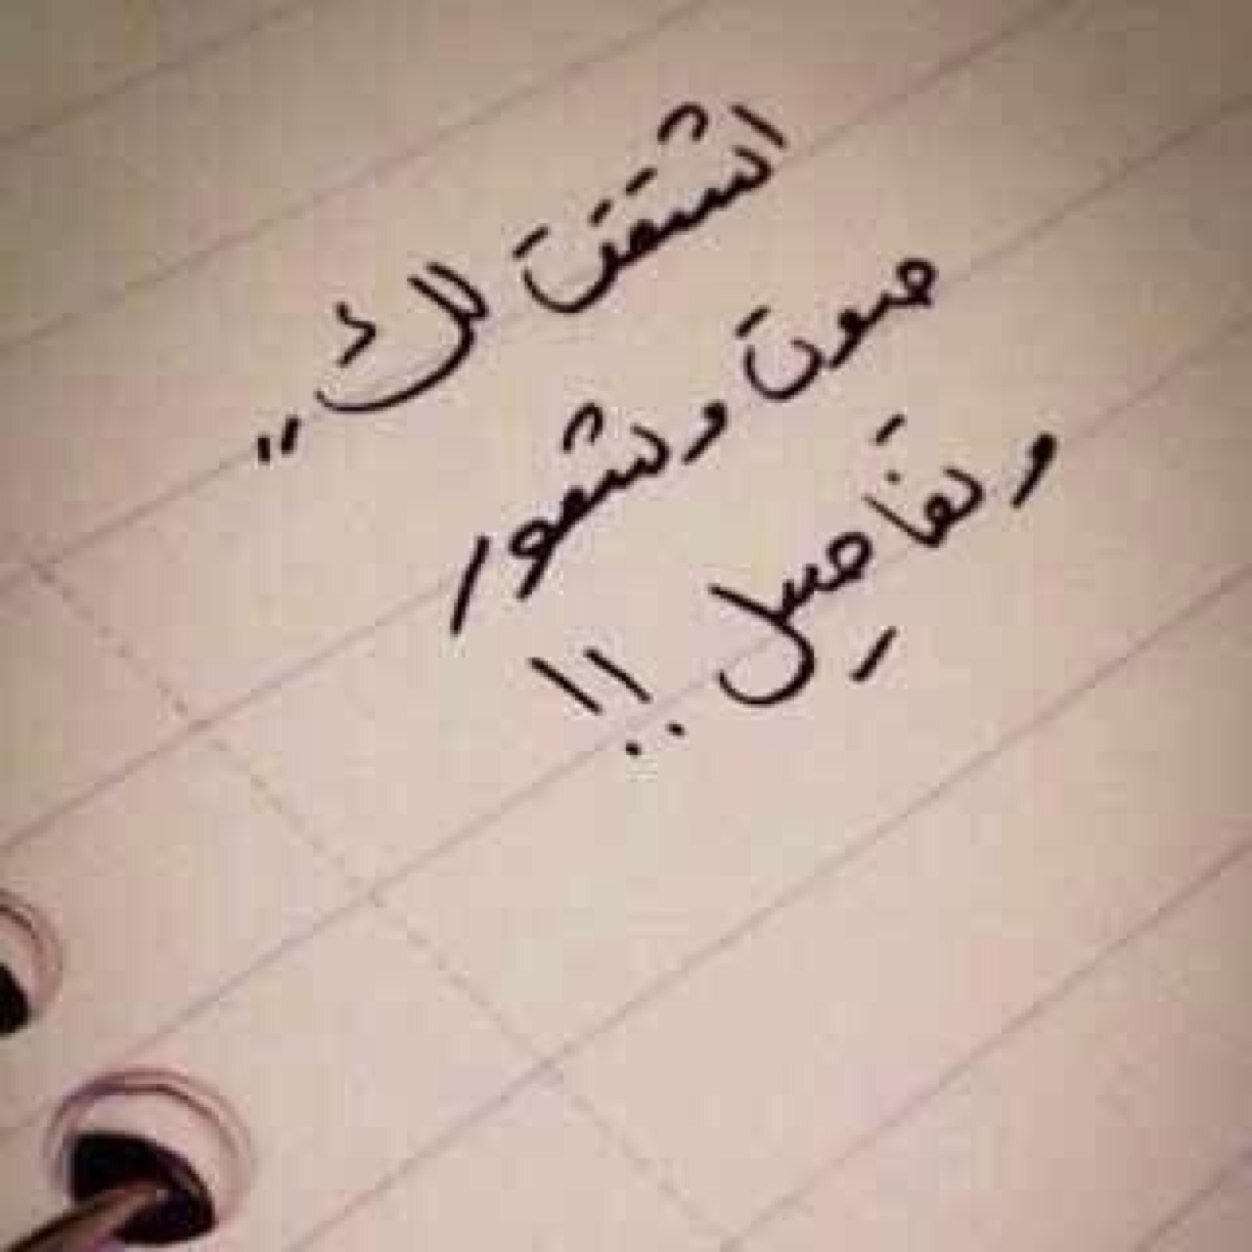 اشتقت لك ,,
صوت وشعور
وتفاصيل !!